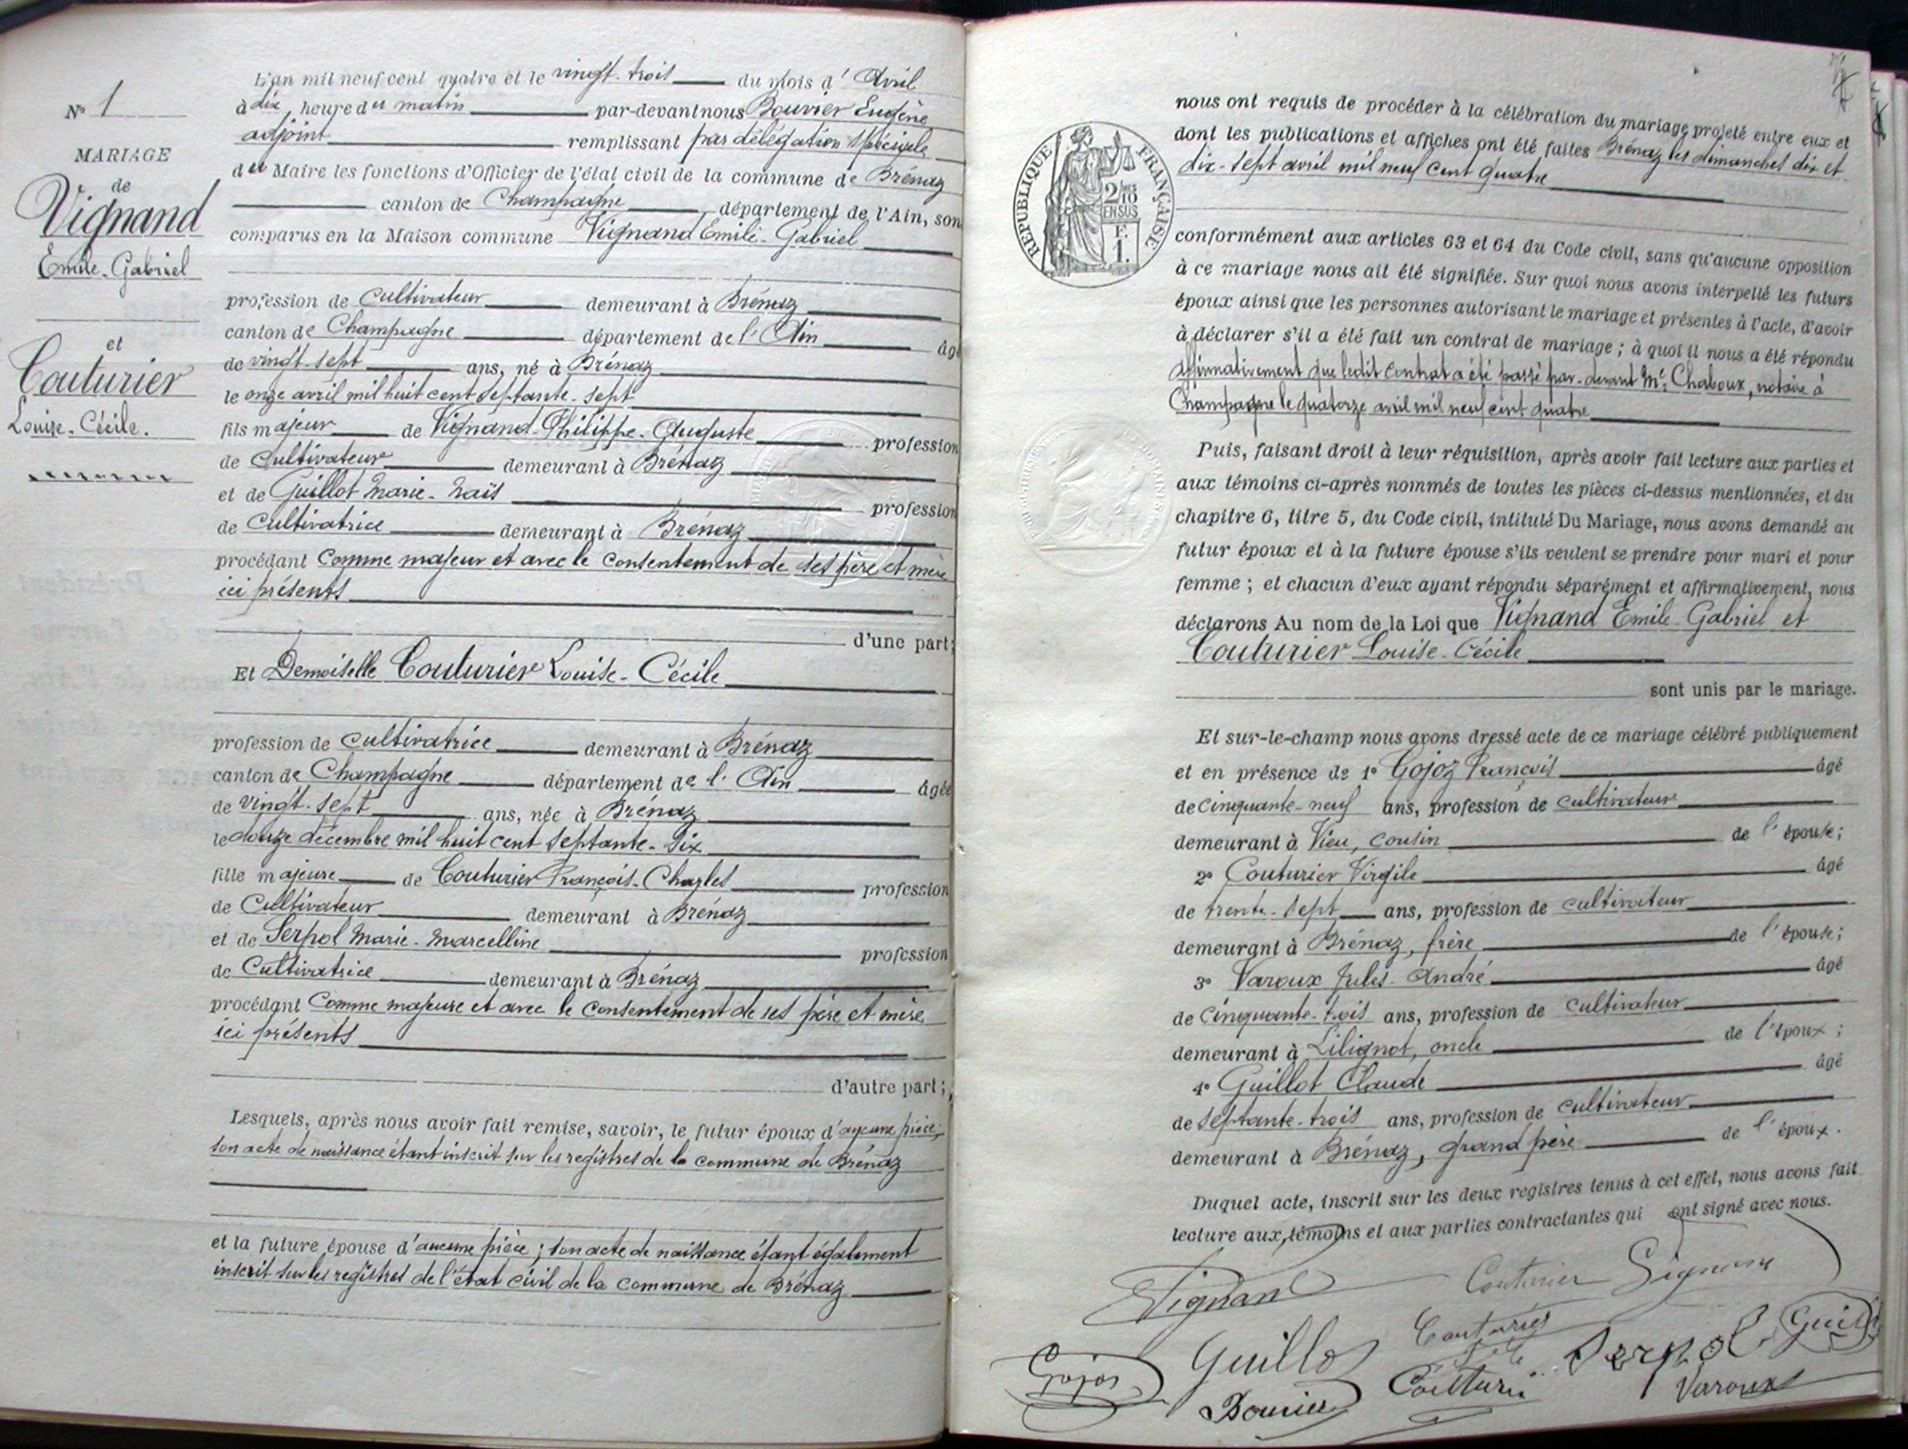 N° 1
MARIAGE
de
Vignand
Emile-Gabriel
et
Couturier
Louise-Cécile.
L'an mil neuf cent quatre et le vingt-trois du mois d'Avril
à dix heure du matin par-devant nous Bouvier Eugène
adjoint remplissant par délégation spéciale
du Maire les fonctions d'Officier de l'état civil de la commune de Brénaz
canton de Champagne département de l'Ain, son
comparus en la Maison commune Vignand Emile-Gabriel
profession de cultivateur demeurant à Brénaz
canton de Champagne département de l'Ain âgé
de vingt-sept ans, né à Brénaz
le onze avril mil huit cent septante-sept
fils majeur de Vignand-Philippe-Auguste profession
de cultivateur demeurant à Brénaz
et de Guillot Marie-Naïs profession
de cultivatrice demeurant à Brénaz
procédant comme majeur et avec le consentement de ses père et mère
ici présents
d'une part;
Et Demoiselle Couturier Louise-Cécile
profession de cultivatrice demeurant à Brénaz
canton de Champagne département de l'Ain âgée
de vingt-sept ans, née à Brénaz
le douze décembre mil huit cent septante-six
fille majeure de Couturier François-Charles profession
de cultivateur demeurant à Brénaz
et de Serpol Marie-Marcelline profession
de cultivatrice demeurant à Brénaz
procédant comme majeure et avec le consentement de ses père et mère
ici présents
d'autre part;
Lesquels, après nous avoir fait remise, savoir, le futur époux d'aucune pièce,
son acte de naissance étant inscrit sur les registres de la commune de Brénaz
et la future épouse d'aucune pièce; son acte de naissance étant également
inscrit sur les registres de l'état civil de la commune de Brénaz
REPUBLIQUE FRANÇAISE
2/10
EN SUS
F.
1.
nous ont requis de procéder à la célébration du mariage projeté entre eux et
dont les publications et affiches ont été faites Brénaz les dimanches dix et
dix-sept avril mil neuf cent quatre
conformément aux articles 63 et 64 du Code civil, sans qu'aucune opposition
à ce mariage nous ait été signifiée. Sur quoi nous avons interpellé les futurs
époux ainsi que les personnes autorisant le mariage et présentes à l'acte, d'avoir
à déclarer s'il a été fait un contrat de mariage; à quoi il nous a été répondu
affirmativement que ledit contrat a été passé par-devant Me Chaboux, notaire à
Champagne le quatorze avril mil neuf cent quatre
Puis, faisant droit à leur réquisition, après avoir fait lecture aux parties et
aux témoins ci-après nommés de toutes les pièces ci-dessus mentionnées, et du
chapitre 6, titre 5, du Code civil, intitulé Du Mariage, nous avons demandé au
futur époux et à la future épouse s'ils veulent se prendre pour mari et pour
femme; et chacun d'eux ayant répondu séparément et affirmativement, nous
déclarons Au nom de la Loi que Vignand Emile-Gabriel et
Couturier Louise-Cécile
sont unis par le mariage.
Et sur-le-champ nous avons dressé acte de ce mariage célébré publiquement
et en présence de 1° Gojoz François âgé
de cinquante-neuf ans, profession de cultivateur
demeurant à Vieu, cousin de l'épouse;
2° Couturier Virgile âgé
de trente-sept ans, profession de cultivateur
demeurant à Brénaz, frère de l'épouse;
3° Varoux Jules-André âgé
de cinquante-trois ans, profession de cultivateur
demeurant à Lilignot, oncle de l'époux;
4° Guillot Claude âgé
de septante-trois ans, profession de cultivateur
demeurant à Brénaz, grand père de l'époux.
Duquel acte, inscrit sur les deux registres tenus à cet effet, nous avons fait
lecture aux témoins et aux parties contractantes qui ont signé avec nous.
Vignand Couturier Vignand
Couturier
Gojoz Guillot Serpol Guillot
Bouvier Couturier Varoux